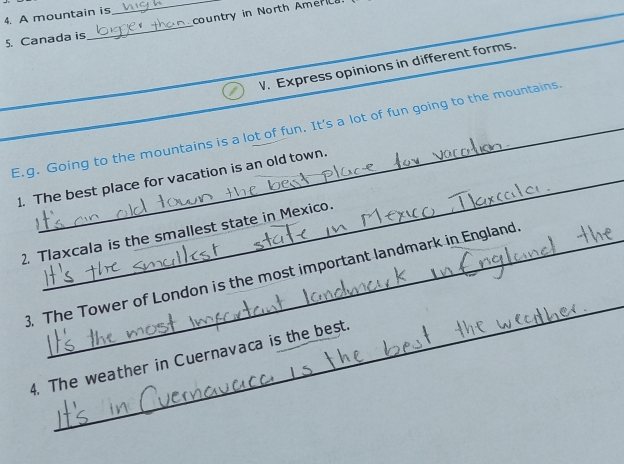 4. A mountain is high
5. Canada is bigger than country in North America.
V. Express opinions in different forms.
E.g. Going to the mountains is a lot of fun. It's a lot of fun going to the mountains.
1. The best place for vacation is an old town.
It's an old town the best place for vacation.
2. Tlaxcala is the smallest state in Mexico.
It's the smallest state in Mexico Tlaxcala.
3. The Tower of London is the most important landmark in England.
It's the most important landmark in England the
4. The weather in Cuernavaca is the best.
It's in Cuernavaca is the best the weather.